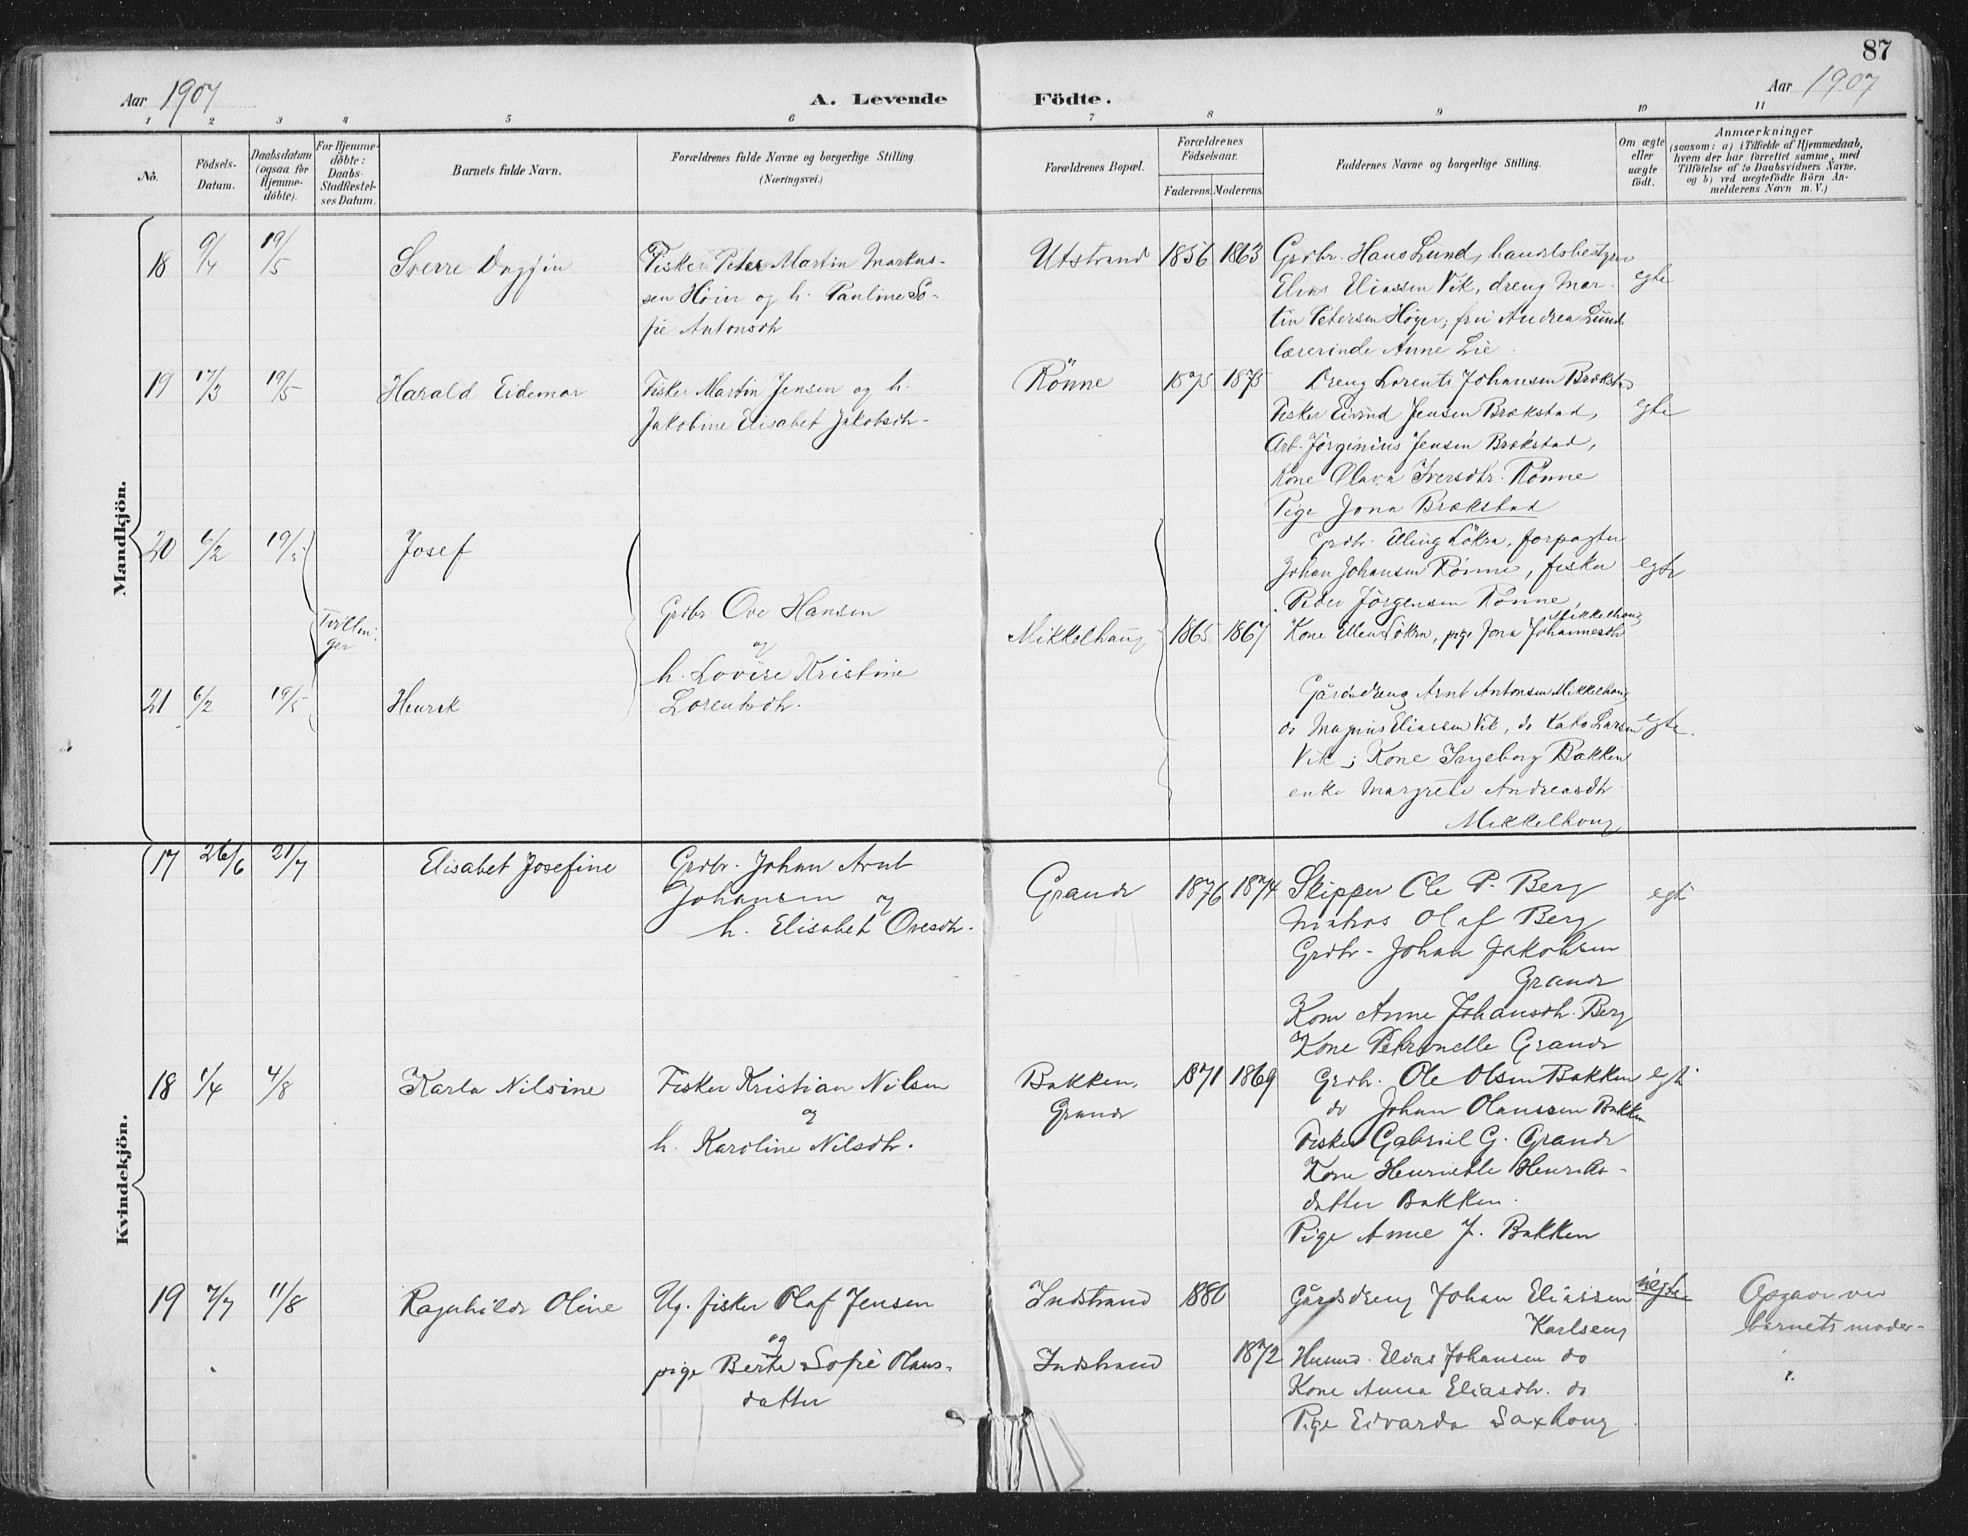 87
Aar 1907
A. Levende Födte.
Aar 1907
1 2 3 4 5 6 7 8 9 10 11
No.
Födsels-Datum.
Daabsdatum (ogsaa for Hjemmedöbte).
For Hjemmedöbte: Daabs-Stadfæstelses Datum.
Barnets fulde Navn.
Forældrenes fulde Navne og borgerlige Stilling.
(Næringsvei.)
Forældrenes Bopæl.
Forældrenes Födselsaar.
Faderens. Moderens.
Faddernes Navne og borgerlige Stilling.
Om ægte eller uægte födt.
Anmærkninger
(saasom: a) i Tilfælde af Hjemmedaab, hvem der har forrettet samme, med Tilföielse af to Daabsvidners Navne. og b) ved uægtefödte Börn Anmelderens Navn m. V.)
Mandkjön.
18 9/4 19/5 Sverre Dagfin
Fisker Peter Martin Markus-
sen Höier og h. Pauline So-
fie Antonsdtr
Utstrand 1856 1863
Grdbr. Hans Lund, handelsbestyrer
Elias Eliassen Vik, dreng Mar-
tin Petersen Höyer, fru Andrea Lund
Lærerinde Anne Lie.
egte
19 17/3 19/5 Harald Eidemar
Fisker Martin Jensen og h.
Jakobine Elisabet Jakobsdtr.
Rönne 1875 1875
Dreng Lorents Johansen Brækstad
Fisker Eivind Jensen Brækstad,
Arb. Jörginius Jensen Brækstad,
Kone Olava Iversdtr. Rönne
Pige Jona Brækstad
egte
20 6/2 19/5 Josef
Tvillin-
ger
Grdbr Ove Hansen
og
h. Lovise Kristine
Lorentsdtr.
Mikkelhaug 1865 1867
Grdbr. Elling Lökra, forpagter
Johan Johansen Rönne, fisker
Peder Jörgensen Rönne
Kone Ellen Lökra, pige Jora Johannesdtr Mikkelhaug
egte
21 6/2 19/5 Henrik
Gårdsdreng Arnt Antonsen Mikkelhaug
do Magnus Eliassen Vik, do Kato Larsen
Vik; Kone Ingeborg Bakken
enke Margrete Andreasdtr
Mikkelhaug
egte.
Kvindekjön.
17 26/6 21/7 Elisabet Josefine
Grdbr. Johan Arnt
Johansen og
h. Elisabet Ovesdtr.
Grande 1876 1874
Skipper Ole P. Berg
Matros Olaf Berg
Grdbr. Johan Jakobsen
Grande
Kone Anne Johansdtr. Berg
Kone Petronelle Grande
egte
18 1/4 4/8 Karla Nilsine
Fisker Kristian Nilsen
og
h. Karoline Nilsdtr.
Bakken,
Grande
1871 1869
Grdbr. Ole Olsen Bakken
do Johan Olaussen Bakken
Fisker Gabriel G. Grande
Kone Henriette Henriks-
datter Bakken.
Pige Anne J. Bakken
egte
19 7/7 11/8 Ragnhilde Oline
Ug. fisker Olaf Jensen
og
pige Berte Sofie Olaus-
datter
Indstrand 1880
Indstrand 1872
Gårdsdreng Johan Eliassen
Karlseng
Husmd. Elias Johansen do
Kone Anna Eliasdtr. do
Pige Edvarda Saxhaug
uegte
Opgave ved
barnets moder-